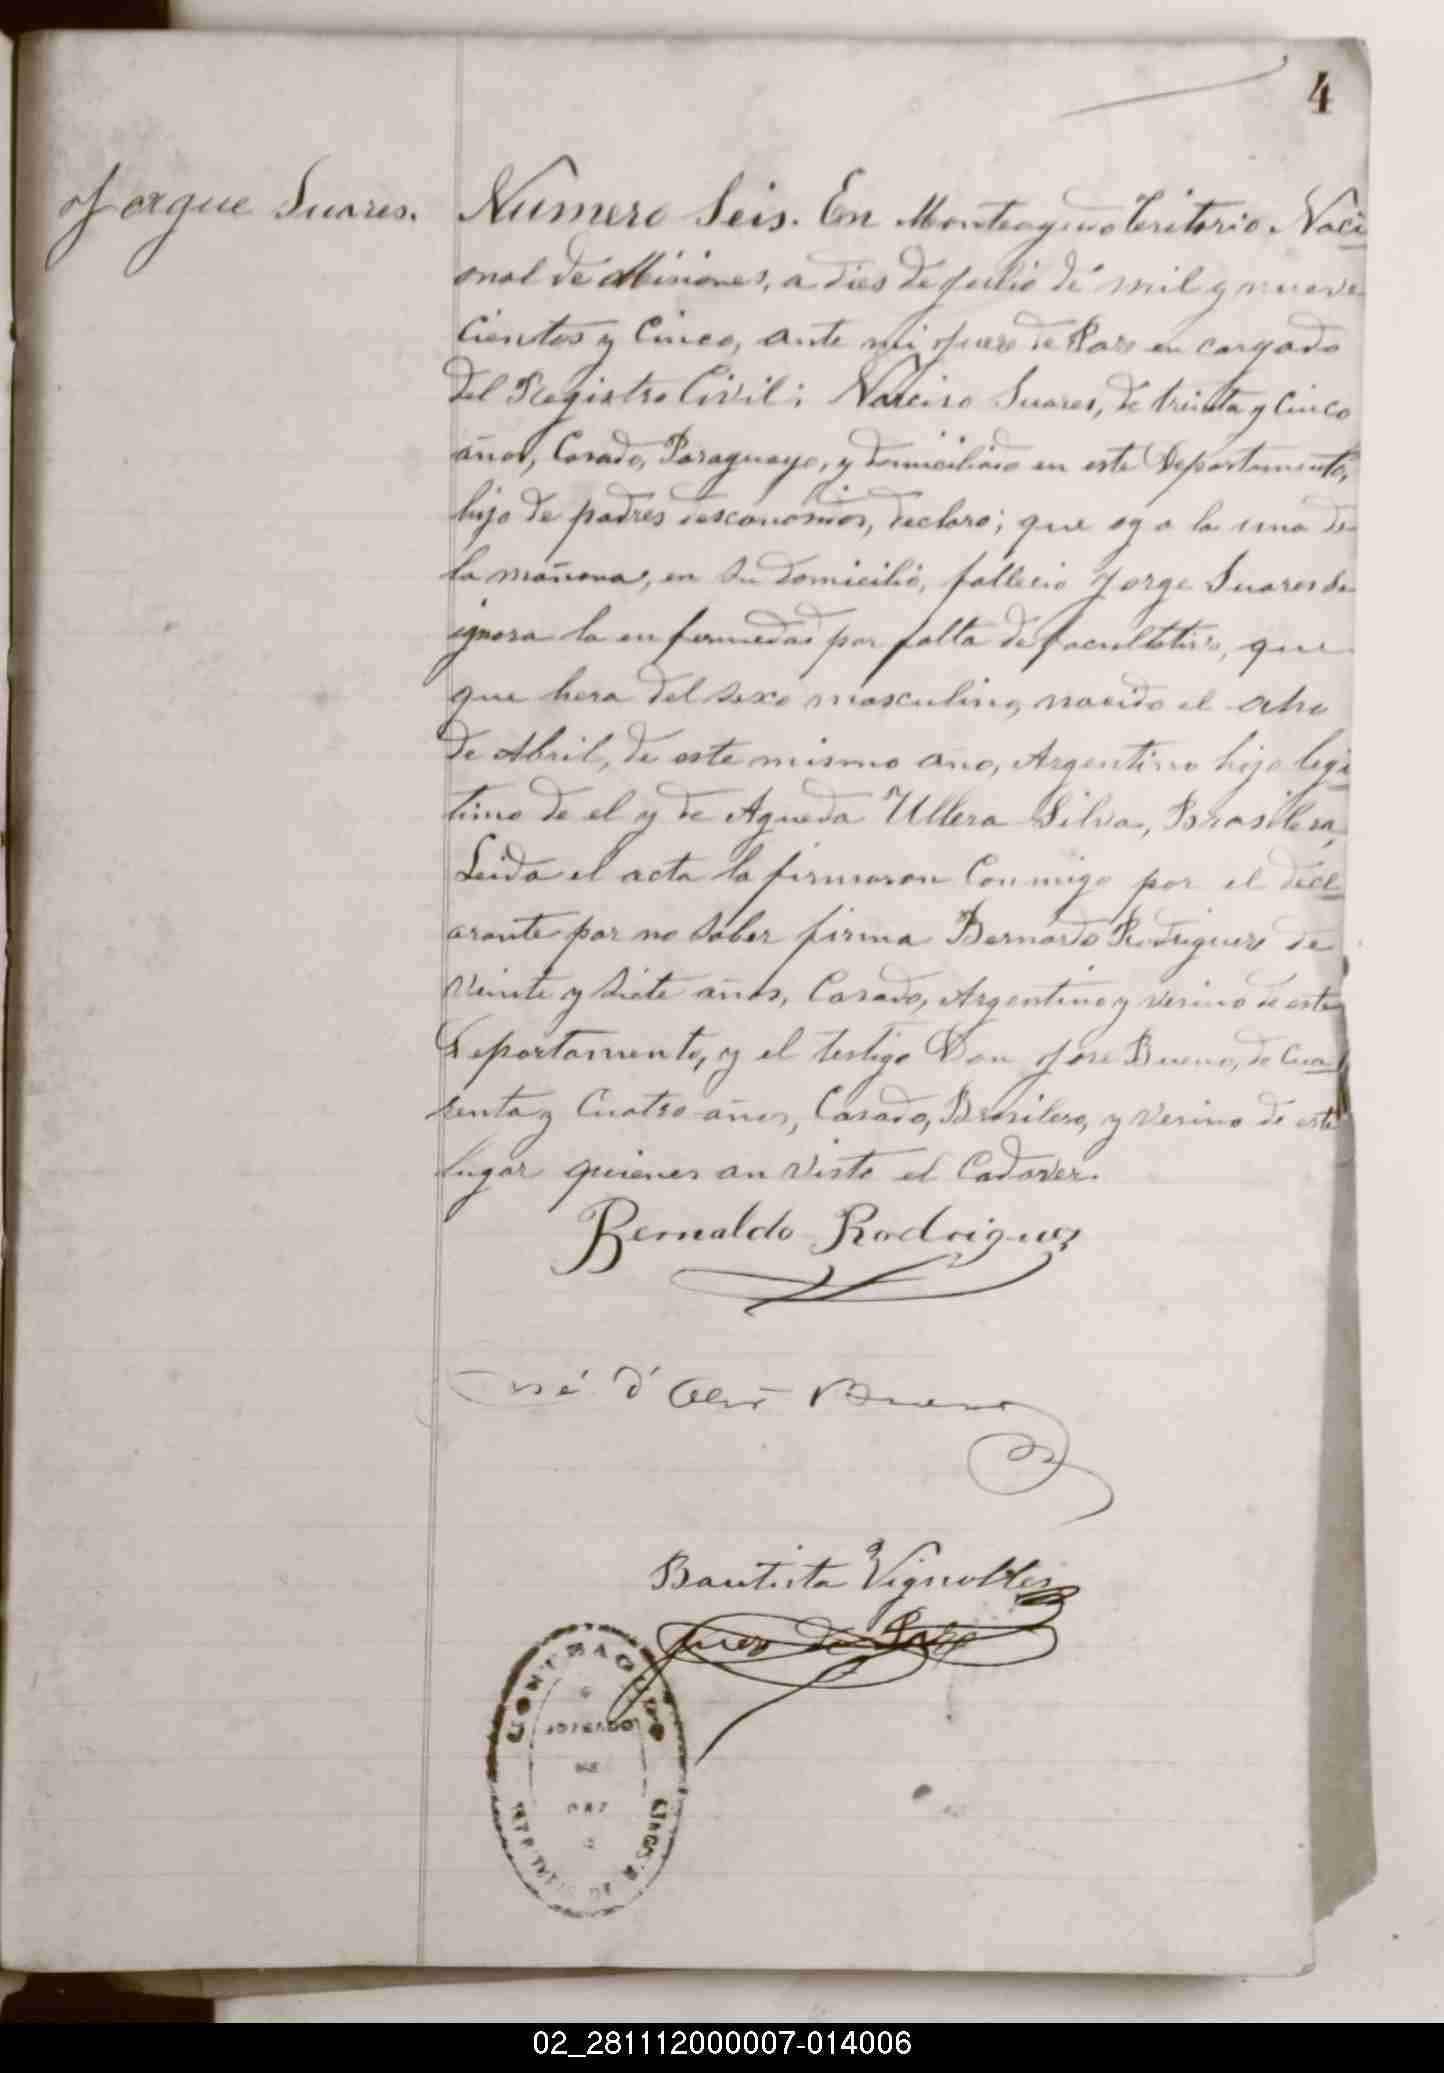 4
Jorgue Suares.
Numero Seis. En Monteagudo Teritorio Naci
onal de Misiones, a dies de Julio de mil y nueve
Cientos y Cinco, ante mi Juez de Paz en cargado
del Registro Civil; Narciso Suares, de trinta y Cinco
años, Casado, Paraguayo, y domiciliado en este Departamento,
hijo de padres desconosidos, declaro; que oy a la una de
la mañana, en su domicilio, fallecio Jorge Suares se
ignora la enfermedad por falta de facultativo, que
que hera del sexo masculino, nacido el
de Abril, de este mismo año, Argentino hijo legi
timo de el y de Agueda Ullera Silva, Brasilera,
Leida el acta la firmaron Conmigo por el decl
arante por no saber firma Bernardo Rodriguez de
Veinte y Siete años, Casado, Argentino y Vesino de este
Departamento, y el testigo Don Jose Bueno, de Cua
renta y Cuatro años, Casado, Brasilero, y Vesino de este
lugar quienes an visto el Cadaver.
Bernaldo Rodriguez
José d' Bueno
Bautista Vignolles
Juez de Paz
MONTEAGUDO
JUZGADO
DE
PAZ
02_281112000007-014006